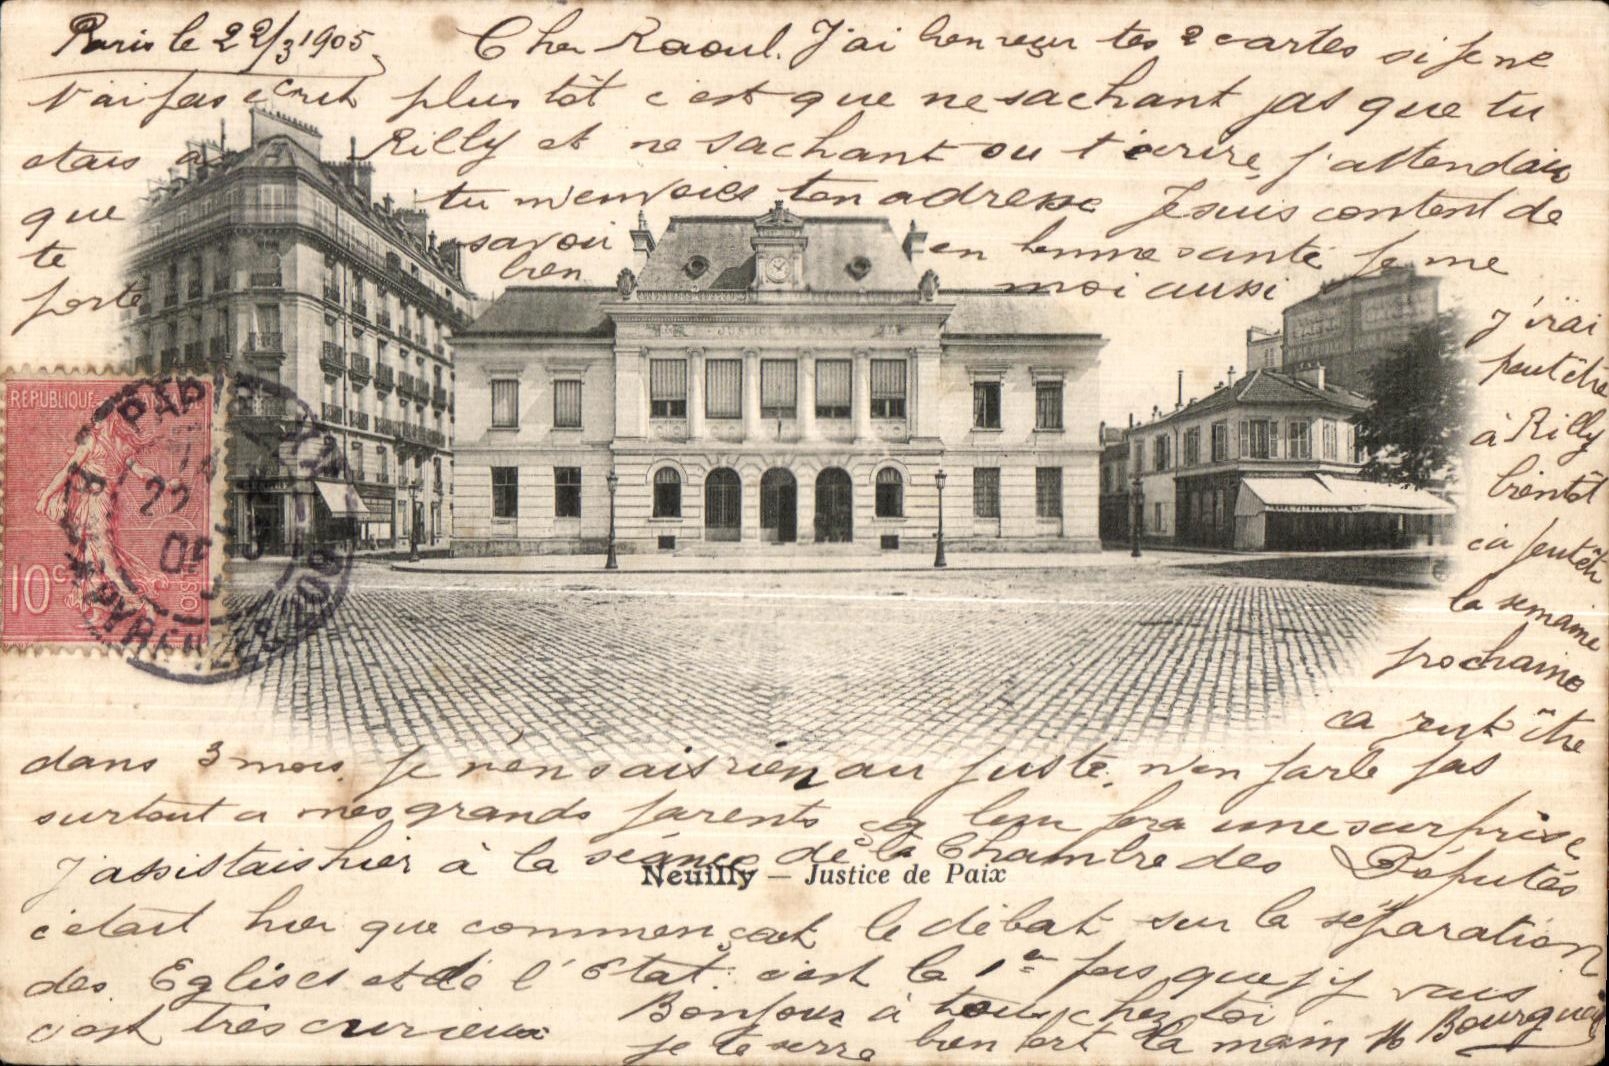 Paris le 22/3 1905
Cher Raoul. J'ai bien reçu tes 2 cartes si je ne
t'ai pas écrit plus tôt c'est que ne sachant pas que tu
etais a Rilly et ne sachant ou t'écrire, j'attendais
que tu m'envoies ton adresse Je suis content de
te savoir en bonne santé je me
porte bien moi aussi
J'irai
peut être
à Rilly
bientôt
ça peut êtr
la semaine
prochaine
ça peut être
dans 3 mois je n'en sais rien au juste, n'en parle pas
surtout a mes grands parents ça leur fera une surprise
J'assistais hier à la séance de la Chambre des Députés
c'était hier que commençait le débat sur la séparation
des Eglises et de l'Etat. c'est la 1re fois que j'y vais
c'est très curieux Bonjour à tous chez toi
je te serre bien fort la main
REPUBLIQUE
10c
PARIS
22
05
JUSTICE DE PAIX
Neuilly – Justice de Paix